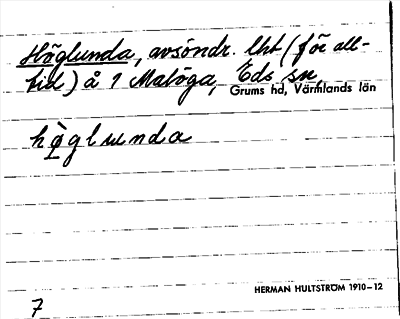 Höglunda, avsöndr. lht (för all-
tid) å 1 Malöga, Eds sn,
Grums hd, Värmlands län
hø̀glunda
HERMAN HULTSTRÖM 1910–12
7